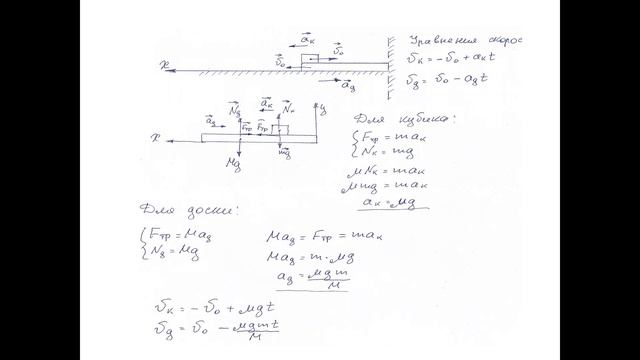 Уравнения скорос
a⃗к
v⃗о
x
v⃗о
a⃗д
vк = -vо + aкt
vд = vо - aдt
N⃗д
a⃗к
N⃗к
y
a⃗д
F⃗тр
F⃗тр
x
Mg
mg
Для кубика:
{ Fтр = maк
Nк = mg
μNк = maк
μmg = maк
aк = μg
Для доски:
{ Fтр = Maд
Nд = Mg
Maд = Fтр = maк
Maд = m·μg
aд = μgm/M
vк = -vо + μgt
vд = vо - μgmt/M